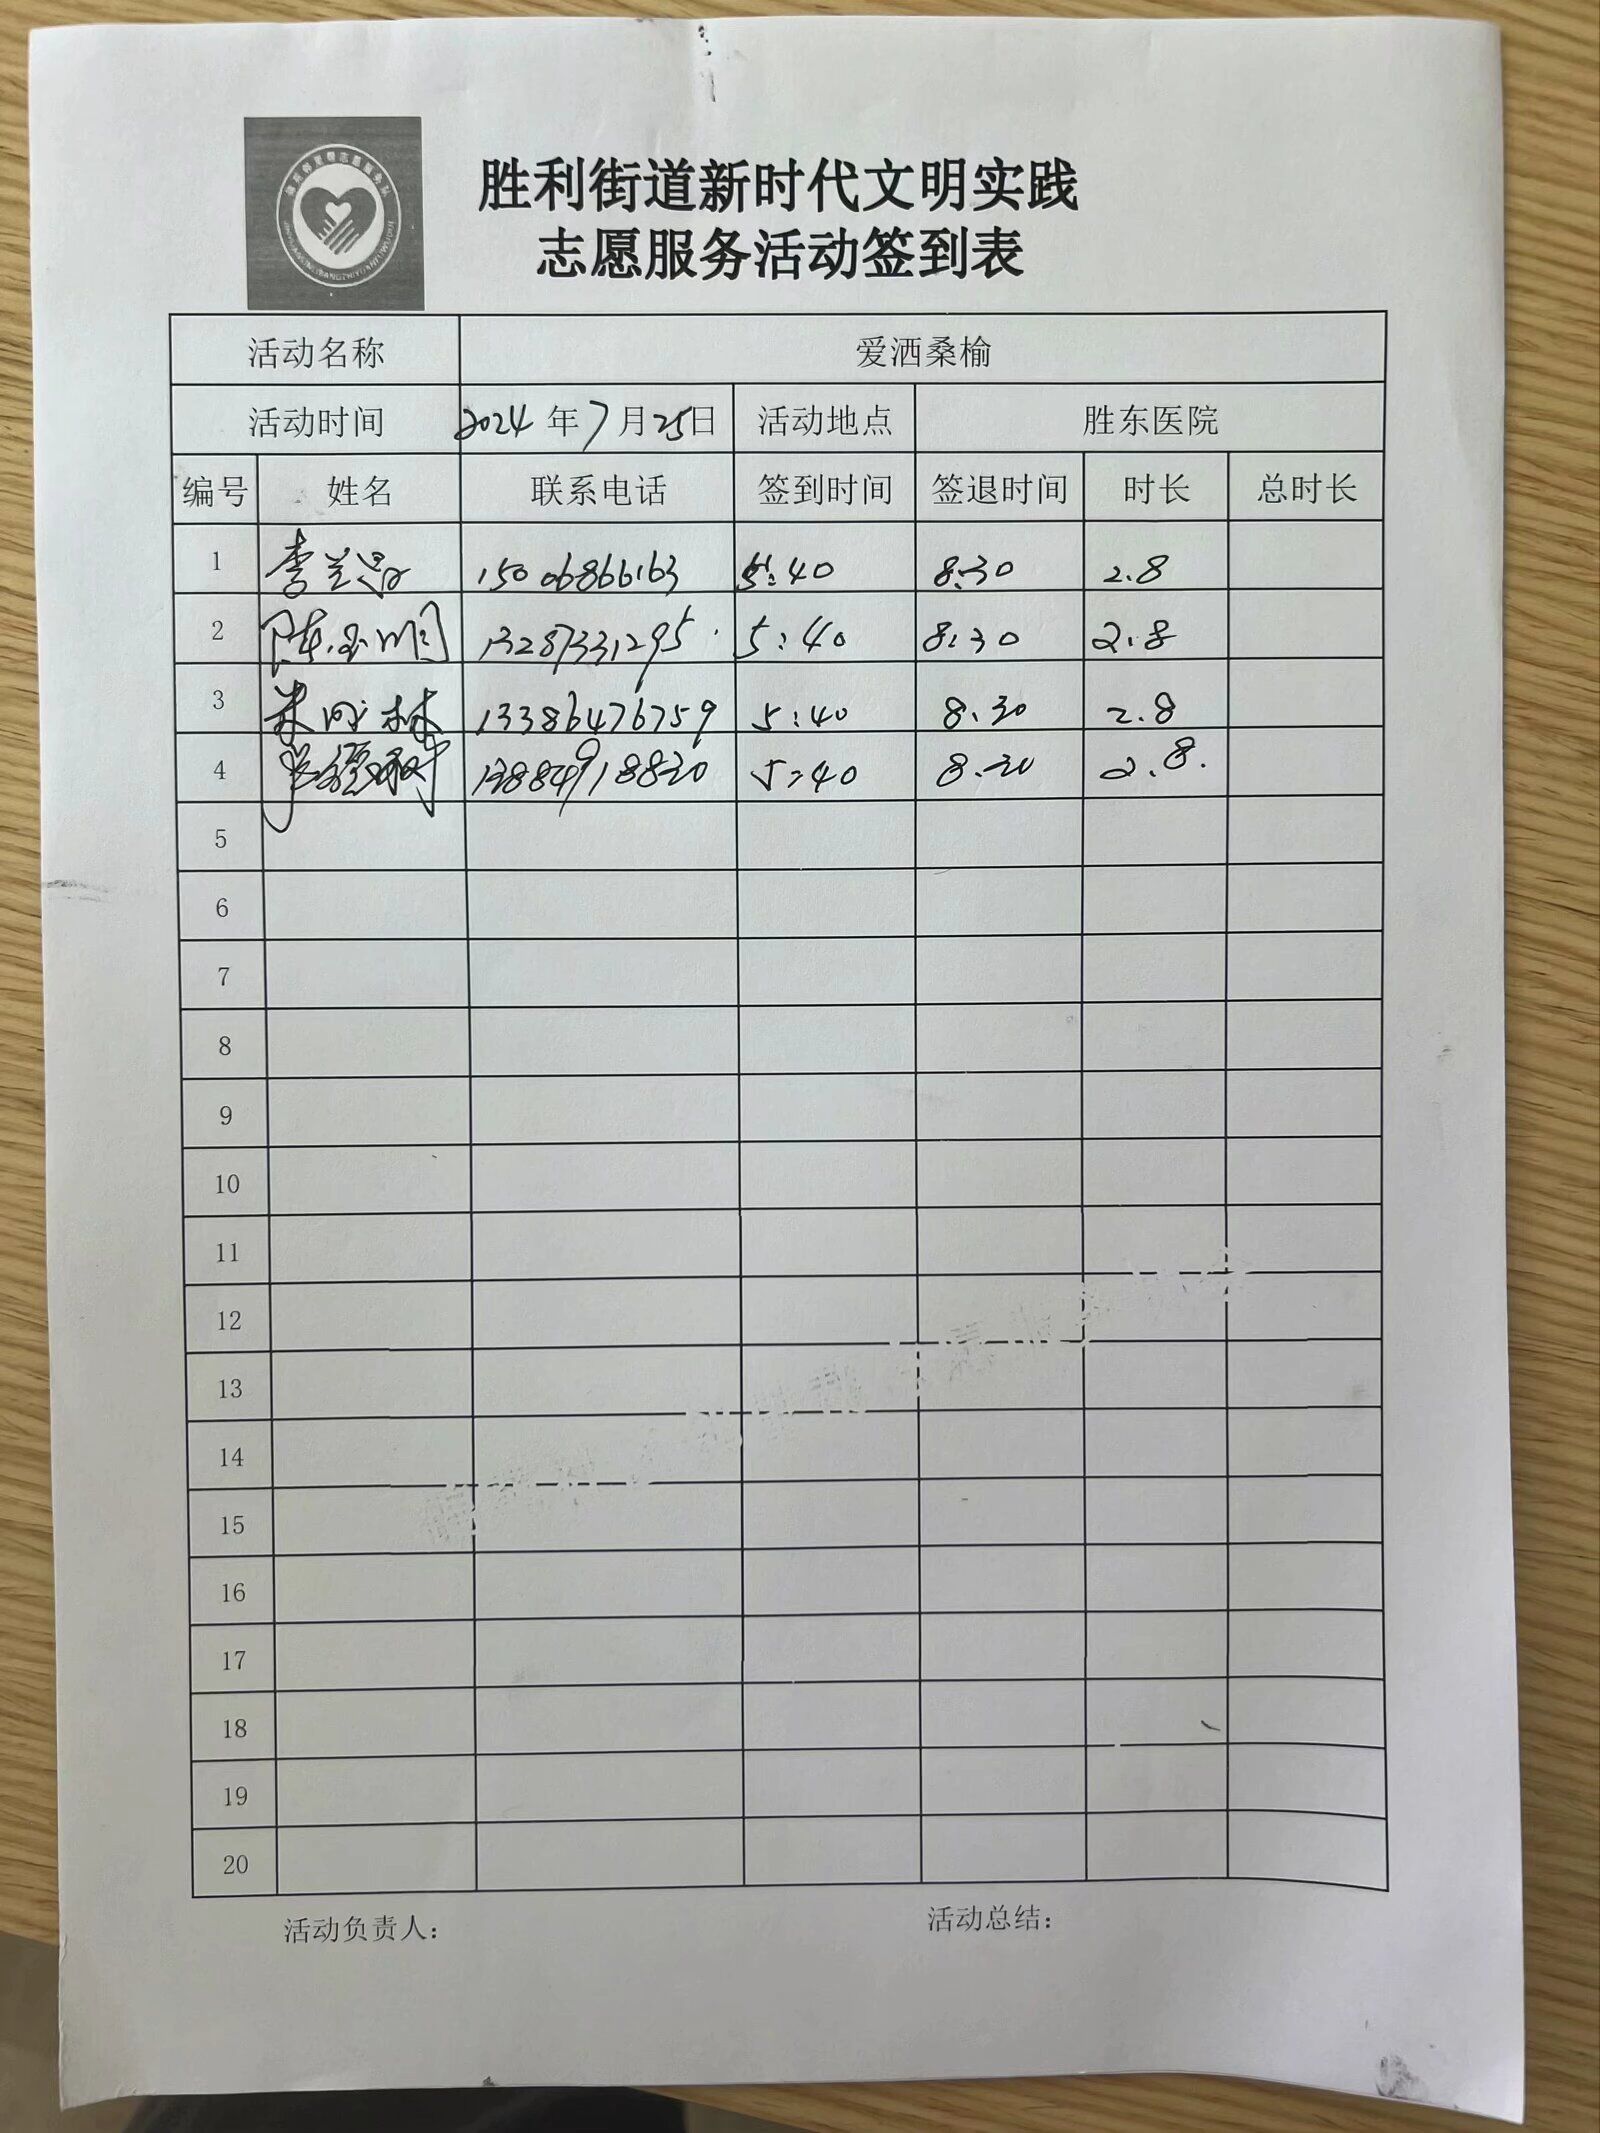 胜利街道新时代文明实践
志愿服务活动签到表
活动名称 爱洒桑榆
活动时间 2024年7月25日 活动地点 胜东医院
编号 姓名 联系电话 签到时间 签退时间 时长 总时长
1 李兰 15006866163 5:40 8:30 2.8
2 陈玉 13287331295 5:40 8:30 2.8
3 林 13386476759 5:40 8:30 2.8
4 13884918830 5:40 8:30 2.8
5
6
7
8
9
10
11
12
13
14
15
16
17
18
19
20
活动负责人： 活动总结：